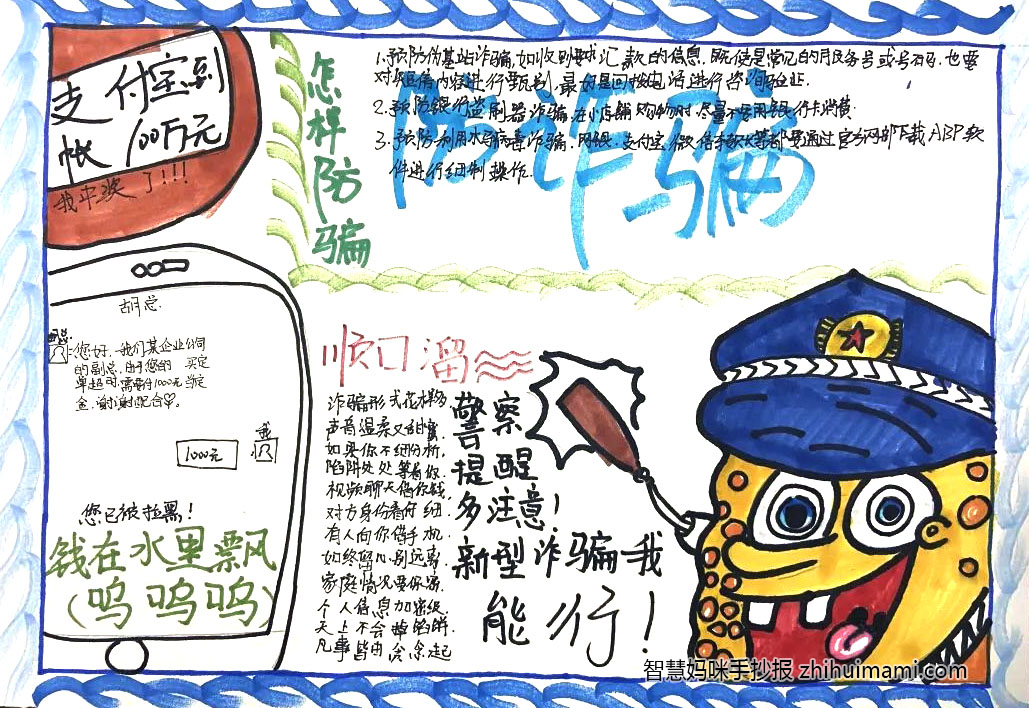 支付宝到
帐100万元
我中奖了!!!
怎样防骗
防诈骗
1.预防伪基站诈骗,如收到要求汇款的信息,既使是常记的服务号或号码,也要
对短信内容进行甄别,最好是回拨电话进行咨询验证.
2.预防银行盗刷器诈骗,在小店铺购物时,尽量不要用银行卡消费.
3.预防利用水马病毒诈骗,网银、支付宝、微信等软件等都要通过官方网部下载ABP软
件进行细制操作.
胡总.
您好,我们某企业公司
的副总,由于您的 买定
单超时,需要付1000元当定
金,谢谢配合♡。
我
1000元
您已被拉黑!
钱在水里飘
(呜呜呜)
顺口溜
诈骗形式花样多
声音温柔又甜蜜,
如果你不细分析,
陷阱处处等着你.
视频聊天借你钱,
对方身份看仔细.
有人向你借手机,
家庭情况要保密,
个人信息加密级.
天上不会掉馅饼.
凡事皆由贪念起
警察
提醒
多注意!
新型诈骗我
能行!
智慧妈咪手抄报 zhihuimami.com